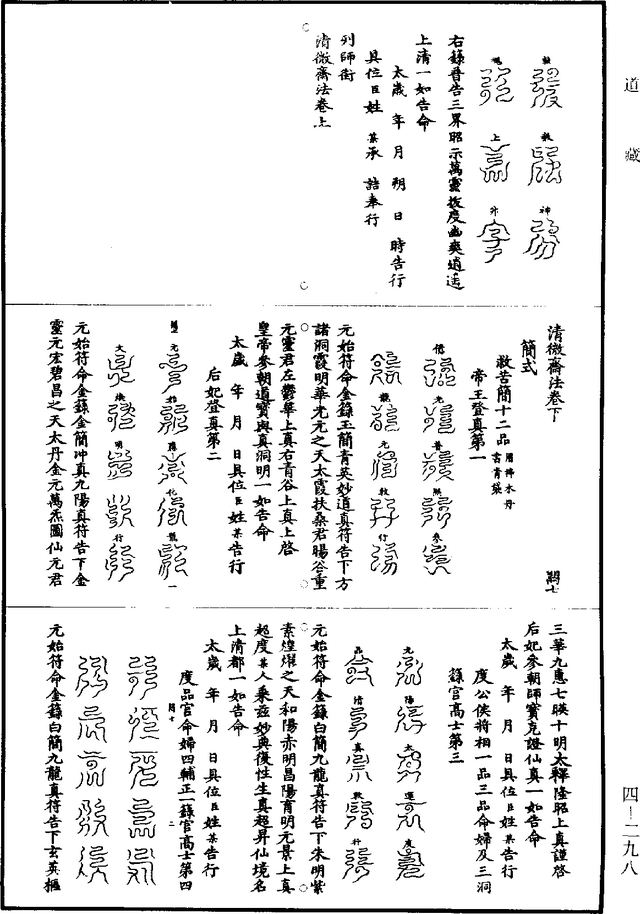 道藏
勑 神
上 升
右籙普告三界昭示萬靈拔度幽爽逍遥
上清一如告命
太歲 年 月 朔 日 時告行
具位臣姓 某承 誥奉行
列師銜
清微齋法卷上
清微齋法卷下
簡式
救苦簡十二品
帝王登真第一
元 敕 行
元始符命金籙玉簡青英妙道真符告下方
諸洞霞明華光元之天太霞扶桑君暘谷重
元靈君左鬱華上真右青谷上真上啓
皇帝參朝道寳與真洞明一如告命
太歲 年 月 日具位臣姓某告行
后妃登真第二
元 始 化 龍
大 煥 明 行
元始符命金籙金簡冲真九陽真符告下金
靈元宏碧昌之天太丹金元萬炁圖仙元君
三華九惠七暎十明太釋隆昭上真謹啓
后妃參朝師寳克證仙真一如告命
太歲 年 月 日具位臣姓某告行
度公侯將相一品三品命婦及三洞
籙官高士第三
九 陽 太 運 度
品 清 真 敕 行
元始符命金籙白簡九龍真符告下朱明紫
素煌煋之天和陽赤明昌陽育明元景上真
超度某人乘兹妙典復性生真超昇仙境名
上清都一如告命
太歲 年 月 日具位臣姓某告行
度品官命婦四輔正一籙官高士第四
元始符命金籙白簡九龍真符告下玄英樞
四—二九八